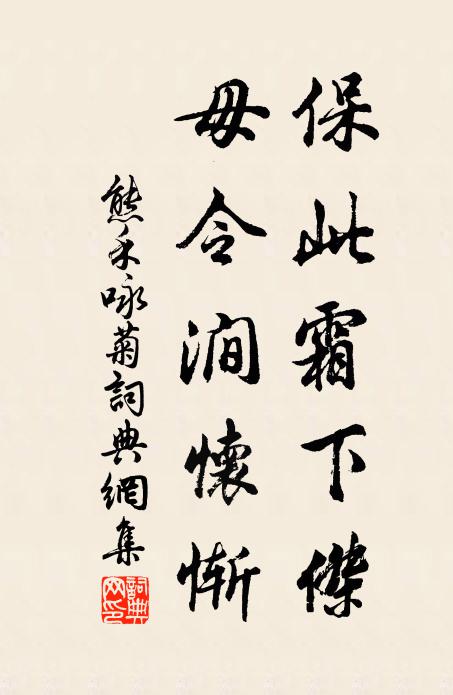 保此霜下傑
毋令澗懷慚
熊禾咏菊詞典網集
詞典網印